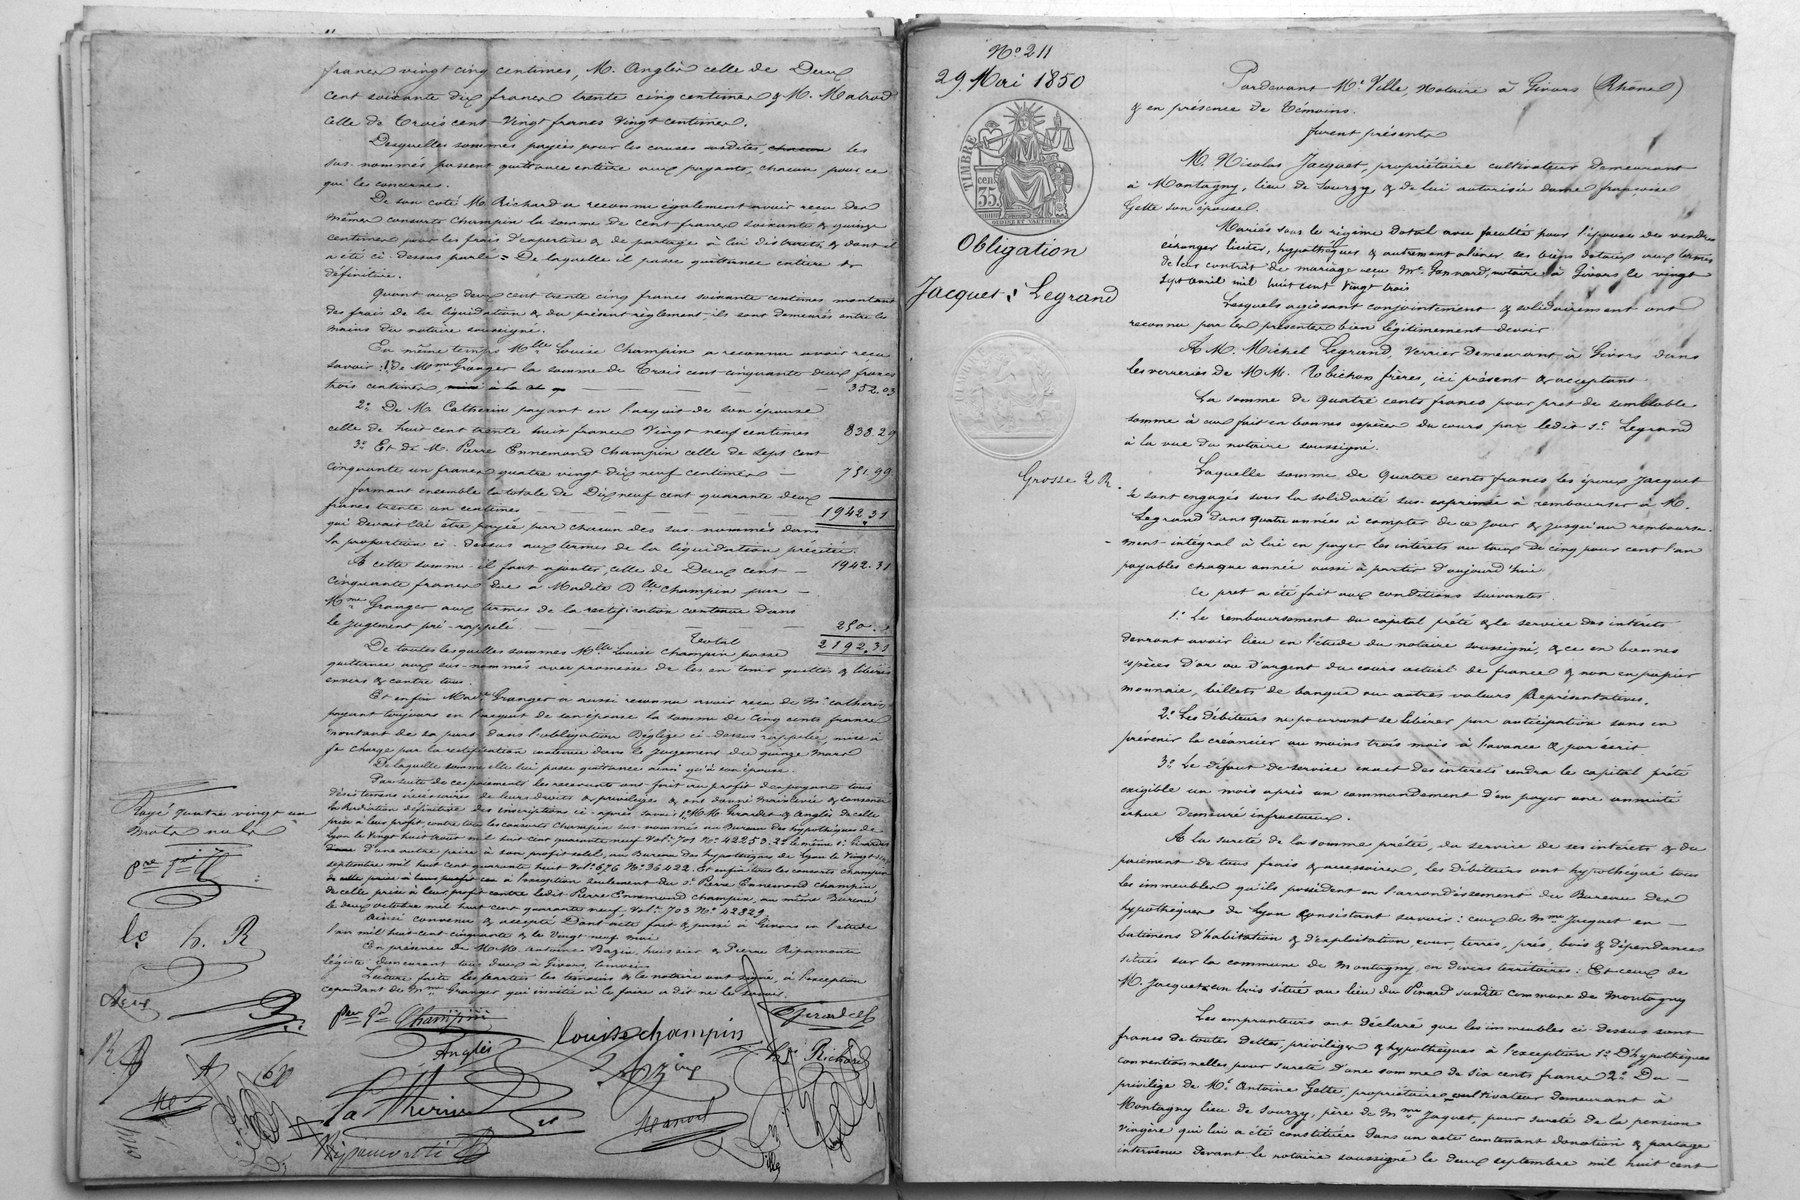 francs vingt cinq centimes, M. Anglès celle de Deux
cent soixante dix francs trente cinq centimes & M. Matrod
celle de Trois cent Vingt francs Vingt centimes.
Desquelles sommes payées pour les causes susdites, chacun les
sus-nommés passent quittance entière aux payants, chacun pour ce
qui le concerne.
De son coté M. Richard a reconnu également avoir reçu des
mêmes consorts Champin la somme de cent francs soixante & quinze
centimes pour les frais d'expertise & de partage à lui distraits, & dont il
a été ci-dessus parlé = De laquelle il passe quittance entière &
définitive.
Quant aux deux cent trente cinq francs soixante centimes montant
des frais de la liquidation & du présent règlement, ils sont demeurés entre les
mains du notaire soussigné.
En même temps Mlle Louise Champin a reconnu avoir reçu
savoir: 1° De Mme Granger la somme de Trois cent cinquante deux francs
trois centimes, 352.03
2° De M. Catherin payant en l'acquit de son épouse
celle de huit cent trente huit francs Vingt neuf centimes 838.29
3° Et de M. Pierre Ennemond Champin celle de Sept cent
cinquante un francs quatre vingt dix neuf centimes — 751.99
formant ensemble la totale de Dix neuf cent quarante deux
francs trente un centimes 1942.31
qui devait lui être payée par chacun des sus-nommés dans
la proportion ci-dessus aux termes de la liquidation précitée.
A cette somme il faut ajouter celle de Deux cent — 1942.31
cinquante francs due à Madite Dlle Champin par —
Mme Granger aux termes de la rectification contenue dans
le jugement pré-rappelé 250.
Total 2192.31
De toutes lesquelles sommes Mlle Louise Champin passe
quittance aux sus-nommés avec promesse de les en tenir quittes & libérés
envers & contre tous.
Et enfin Mme Granger a aussi reconnu avoir reçu de M. Catherin
payant toujours en l'acquit de son épouse la somme de Cinq cents francs
montant de sa part dans l'obligation Déglize ci-dessus rappelée, mise à
sa charge par la rectification contenue dans le Jugement du quinze mars
De laquelle somme elle lui passe quittance ainsi qu'à son épouse.
Par suite de ces paiements les recevants ont fait au profit des payants tous
désistements nécessaires de leurs droits & privilèges & ont donné mainlevée & consenti
la Radiation définitive des inscriptions ci-après savoir 1° MM. Girardet & Anglès de celle
prise à leur profit contre tous les consorts Champin sus-nommés au Bureau des hypothèques de
Lyon le Vingt huit mil huit cent quarante neuf Vol. 701 N° 42253. 2° le même S. Girardet
d'une autre prise à son profit seul, au Bureau des hypothèques de Lyon le Vingt sept
septembre mil huit cent quarante huit Vol. 676 N° 36422. Et enfin tous les consorts Champin
à l'exception seulement du S. Pierre Ennemond Champin,
de celle prise à leur profit contre ledit Pierre Ennemond Champin, au même Bureau
le deux octobre mil huit cent quarante neuf, Vol. 703 N° 42829
Ainsi convenu & accepté Dont acte fait & passé à Givors en l'étude
l'an mil huit cent cinquante & le Vingt neuf mai
En présence de MM. Antoine Bazin, huissier & Pierre Ripamonte
légiste demeurant tous deux à Givors, témoins
Lecture faite les parties les témoins & le notaire ont signé, à l'exception
cependant de Mme Granger qui invitée à le faire a dit ne le savoir.
Rayé quatre vingt un
mots nuls
Champin
louise champin
Girardet
Anglès
Bazin
Richard
Catherin
Ripamonti
N° 211
29 Mai 1850
TIMBRE
cen.
35.
Obligation
Jacquet : Legrand
Grosse 2 R.
Pardevant Me Ville, Notaire à Givors (Rhône)
& en présence de Témoins.
furent présents
M. Nicolas Jacquet, propriétaire cultivateur demeurant
à Montagny, lieu de Sourzy, & de lui autorisée dame françoise
Gette son épouse.
Mariés sous le régime dotal avec faculté pour l'épouse de vendre
échanger liciter, hypothéquer & autrement aliéner ses biens dotaux aux termes
de leur contrat de mariage reçu Me Gonnard, notaire à Givors le vingt
sept avril mil huit cent vingt trois
Lesquels agissant conjointement & solidairement ont
reconnu par les présentes bien légitimement devoir
A M. Michel Legrand, Verrier demeurant à Givors dans
les verreries de MM. Robichon frères, ici présent & acceptant
La somme de quatre cents francs pour pret de semblable
somme à eux fait en bonnes espèces du cours par ledit S. Legrand
à la vue du notaire soussigné.
Laquelle somme de quatre cents francs les époux Jacquet
se sont engagés sous la solidarité sus-exprimée à rembourser à M.
Legrand dans quatre années à compter de ce jour & jusqu'au rembourse-
ment intégral à lui en payer les intérêts au taux de cinq pour cent l'an
payables chaque année aussi à partir d'aujourd'hui
Ce pret a été fait aux conditions suivantes.
1° Le remboursement du capital prêté & le service des intérêts
devront avoir lieu en l'étude du notaire soussigné, & ce en bonnes
espèces d'or ou d'argent du cours actuel de france & non en papier
monnaie, billets de banque ou autres valeurs Représentatives.
2° Les débiteurs ne pourront se libérer par anticipation sans en
prévenir le créancier au moins trois mois à l'avance & par écrit
3° Le défaut de service exact des intérêts rendra le capital prêté
exigible un mois après un commandement d'en payer une annuité
échue demeuré infructueux.
A la sureté de la somme prêtée, du service de ses interets & du
paiement de tous frais & accessoires, les débiteurs ont hypothéqué tous
les immeubles qu'ils possèdent en l'arrondissement du Bureau des
hypothèques de Lyon consistant savoir : ceux de Mme Jacquet en —
batimens d'habitation & d'exploitation, cour, terres, prés, bois & dépendances
situés sur la commune de Montagny, en divers territoires. Et ceux de
M. Jacquet en un bois situé au lieu du Pinard susdite commune de Montagny
Les emprunteurs ont déclaré que les immeubles ci-dessus sont
francs de toutes dettes, privilèges & hypothèques à l'exception 1° D'hypothèques
conventionnelles pour sureté d'une somme de six cents francs 2° Du —
privilège de M. Antoine Gette, propriétaire cultivateur demeurant à
Montagny lieu de Sourzy, père de Mme Jaquet, pour sureté de la pension
viagère qui lui a été constituée dans un acte contenant donation & partage
intervenu devant le notaire soussigné le deux septembre mil huit cent